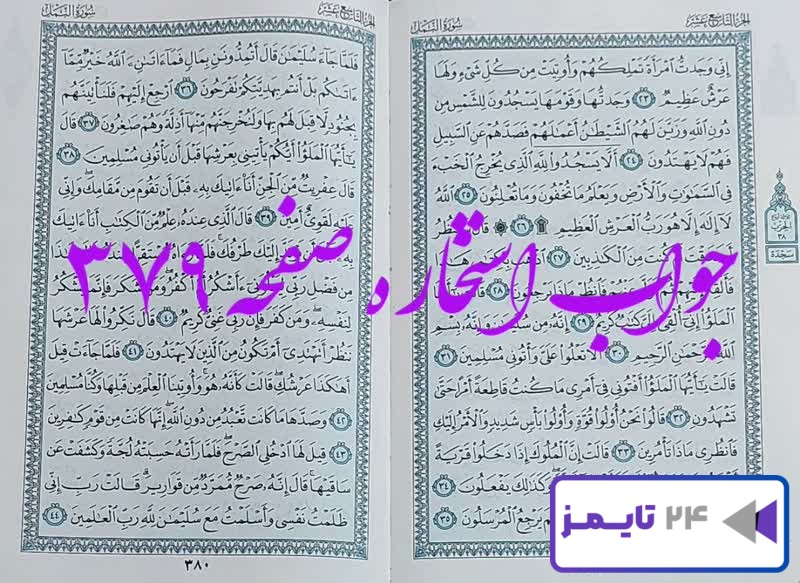 الجزء التاسع عشر
سورة النمل
إِنِّي وَجَدتُّ ٱمْرَأَةً تَمْلِكُهُمْ وَأُوتِيَتْ مِن كُلِّ شَىْءٍ وَلَهَا
عَرْشٌ عَظِيمٌ ٢٣ وَجَدتُّهَا وَقَوْمَهَا يَسْجُدُونَ لِلشَّمْسِ مِن
دُونِ ٱللَّهِ وَزَيَّنَ لَهُمُ ٱلشَّيْطَٰنُ أَعْمَٰلَهُمْ فَصَدَّهُمْ عَنِ ٱلسَّبِيلِ
فَهُمْ لَا يَهْتَدُونَ ٢٤ أَلَّا يَسْجُدُوا۟ لِلَّهِ ٱلَّذِى يُخْرِجُ ٱلْخَبْءَ
فِى ٱلسَّمَٰوَٰتِ وَٱلْأَرْضِ وَيَعْلَمُ مَا تُخْفُونَ وَمَا تُعْلِنُونَ ٢٥ ٱللَّهُ
لَآ إِلَٰهَ إِلَّا هُوَ رَبُّ ٱلْعَرْشِ ٱلْعَظِيمِ ۩ ٢٦ ۞
كُنتَ مِنَ ٱلْكَٰذِبِينَ ٢٧ ٱذْهَب
فَٱنظُرْ مَاذَا يَرْجِعُونَ ٢٨
ٱلْمَلَؤُا۟ إِنِّىٓ أُلْقِىَ إِلَىَّ كِتَٰبٌ كَرِيمٌ ٢٩ إِنَّهُۥ مِن سُلَيْمَٰنَ وَإِنَّهُۥ بِسْمِ
ٱللَّهِ ٱلرَّحْمَٰنِ ٱلرَّحِيمِ ٣٠ أَلَّا تَعْلُوا۟ عَلَىَّ وَأْتُونِى مُسْلِمِينَ ٣١
قَالَتْ يَٰٓأَيُّهَا ٱلْمَلَؤُا۟ أَفْتُونِى فِىٓ أَمْرِى مَا كُنتُ قَاطِعَةً أَمْرًا حَتَّىٰ
تَشْهَدُونِ ٣٢ قَالُوا۟ نَحْنُ أُو۟لُوا۟ قُوَّةٍ وَأُو۟لُوا۟ بَأْسٍ شَدِيدٍ وَٱلْأَمْرُ إِلَيْكِ
فَٱنظُرِى مَاذَا تَأْمُرِينَ ٣٣ قَالَتْ إِنَّ ٱلْمُلُوكَ إِذَا دَخَلُوا۟ قَرْيَةً
وَكَذَٰلِكَ يَفْعَلُونَ ٣٤
يَرْجِعُ ٱلْمُرْسَلُونَ ٣٥
الحزب
٣٨
سجدة
الجزء التاسع عشر
سورة النمل
فَلَمَّا جَآءَ سُلَيْمَٰنَ قَالَ أَتُمِدُّونَنِ بِمَالٍ فَمَآ ءَاتَىٰنِۦَ ٱللَّهُ خَيْرٌ مِّمَّآ
ءَاتَىٰكُم بَلْ أَنتُم بِهَدِيَّتِكُمْ تَفْرَحُونَ ٣٦ ٱرْجِعْ إِلَيْهِمْ فَلَنَأْتِيَنَّهُم
بِجُنُودٍ لَّا قِبَلَ لَهُم بِهَا وَلَنُخْرِجَنَّهُم مِّنْهَآ أَذِلَّةً وَهُمْ صَٰغِرُونَ ٣٧ قَالَ
يَٰٓأَيُّهَا ٱلْمَلَؤُا۟ أَيُّكُمْ يَأْتِينِى بِعَرْشِهَا قَبْلَ أَن يَأْتُونِى مُسْلِمِينَ ٣٨
قَالَ عِفْرِيتٌ مِّنَ ٱلْجِنِّ أَنَا۠ ءَاتِيكَ بِهِۦ قَبْلَ أَن تَقُومَ مِن مَّقَامِكَ وَإِنِّى
عَلَيْهِ لَقَوِىٌّ أَمِينٌ ٣٩ قَالَ ٱلَّذِى عِندَهُۥ عِلْمٌ مِّنَ ٱلْكِتَٰبِ أَنَا۠ ءَاتِيكَ
إِلَيْكَ طَرْفُكَ
مِن فَضْلِ رَبِّى
لِنَفْسِهِۦ وَمَن كَفَرَ فَإِنَّ رَبِّى غَنِىٌّ كَرِيمٌ ٤٠ قَالَ نَكِّرُوا۟ لَهَا عَرْشَهَا
نَنظُرْ أَتَهْتَدِىٓ أَمْ تَكُونُ مِنَ ٱلَّذِينَ لَا يَهْتَدُونَ ٤١ فَلَمَّا جَآءَتْ قِيلَ
أَهَٰكَذَا عَرْشُكِ قَالَتْ كَأَنَّهُۥ هُوَ وَأُوتِينَا ٱلْعِلْمَ مِن قَبْلِهَا وَكُنَّا مُسْلِمِينَ
٤٢ وَصَدَّهَا مَا كَانَت تَّعْبُدُ مِن دُونِ ٱللَّهِ إِنَّهَا كَانَتْ مِن قَوْمٍ كَٰفِرِينَ
٤٣ قِيلَ لَهَا ٱدْخُلِى ٱلصَّرْحَ فَلَمَّا رَأَتْهُ حَسِبَتْهُ لُجَّةً وَكَشَفَتْ عَن
سَاقَيْهَا قَالَ إِنَّهُۥ صَرْحٌ مُّمَرَّدٌ مِّن قَوَارِيرَ قَالَتْ رَبِّ إِنِّى
ظَلَمْتُ نَفْسِى وَأَسْلَمْتُ مَعَ سُلَيْمَٰنَ لِلَّهِ رَبِّ ٱلْعَٰلَمِينَ ٤٤
٣٨٠
جواب استخاره صفحه ۳۷۹
۲۴ تایمز